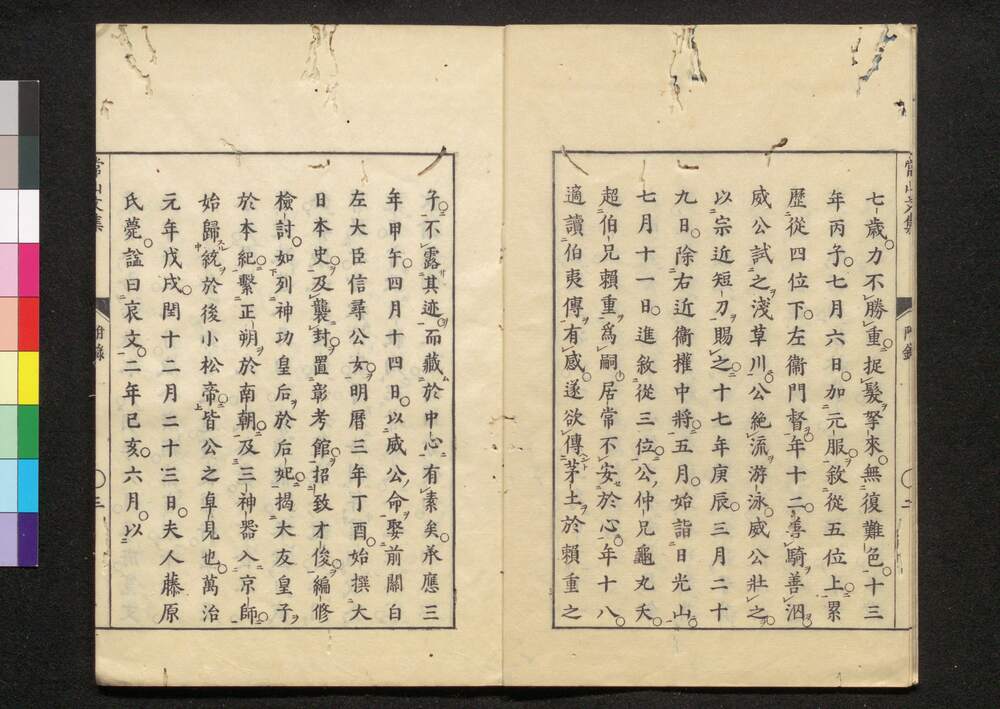 七歲力不勝重捉髮拏來無復難色十三
年丙子七月六日加元服敘從五位上累
歷從四位下左衞門督年十二善騎善泅
威公試之淺草川公絶流游泳威公壯之
以宗近短刀賜之十七年庚辰三月二十
九日除右近衞權中將五月始詣日光山
七月十一日進敘從三位公仲兄龜丸夭
超伯兄賴重爲嗣居常不安於心年十八
適讀伯夷傳有感遂欲傳茅土於賴重之
子不露其迹而藏於中心有素矣承應三
年甲午四月十四日以威公命娶前關白
左大臣信尋公女明曆三年丁酉始撰大
日本史及襲封置彰考館招致才俊編修
檢討如列神功皇后於后妃揭大友皇子
於本紀繫正朔於南朝及三神器入京師
始歸統於後小松帝皆公之卓見也萬治
元年戊戌閏十二月二十三日夫人藤原
氏薨謚曰哀文二年己亥六月以
常山文集
附錄
三